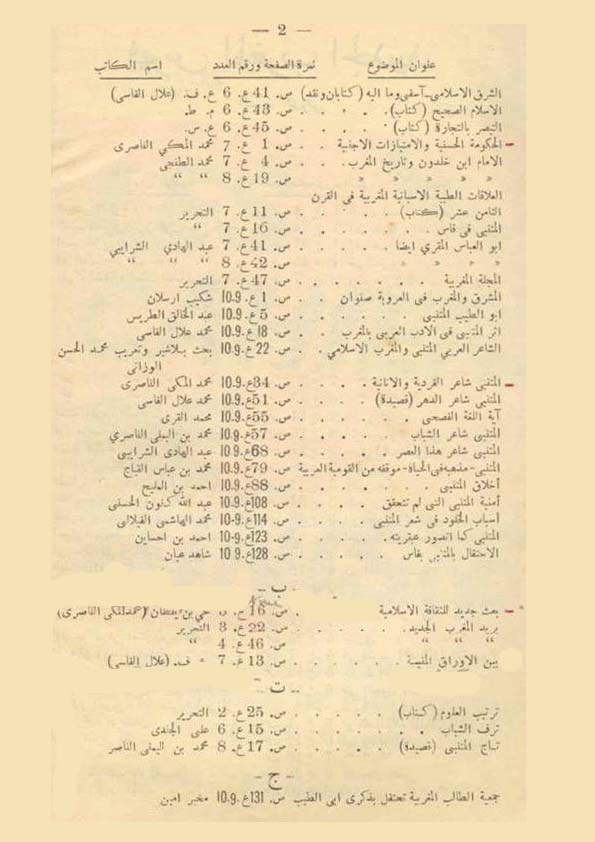 — 2 —
عنوان الموضوع نمرة الصفحة ورقم العدد اسم الكاتب
الشرق الاسلامى-آسفى وما اليه (كتابان ونقد) ص. 41 ع. 6 ع. ف. (علال الفاسى)
الاسلام الصحيح (كتاب) . . . . . ص. 43 ع. 6 م. ط.
التبصر بالتجارة (كتاب) . . . . ص. 45 ع. 6 ع. س.
الحكومة الحسنية والامتيازات الاجنبية . . ص. 1 ع. 7 محمد المكي الناصرى
الامام ابن خلدون وتاريخ المغرب . . ص. 4 ع. 7 محمد الطنجى
» » » » » ص. 19 ع. 8 “ “
العلاقات الطبية الاسبانية المغربية فى القرن
الثامن عشر (كتاب) . . . . . ص. 11 ع. 7 التحرير
المتنبى فى فاس . . . . . . ص. 16 ع. 7 “
ابو العباس المقري ايضا . . . . ص. 41 ع. 7 عبد الهادي الشرايبي
» » » » ص. 42 ع. 8 “ “ “
المجلة المغربية . . . . . . ص. 47 ع. 7 التحرير
المشرق والمغرب فى العروبة صنوان . . ص. 1 ع. 9-10 شكيب ارسلان
ابو الطيب المتنبى . . . . . ص. 5 ع. 9-10 عبد الخالق الطريس
اثر المتنبى فى الادب العربى بالمغرب . . ص. 18 ع. 9-10 محمد علال الفاسى
الشاعر العربي المتنبى والمغرب الاسلامي . . ص. 22 ع. 9-10 بحث بلاشير وتعريب محمد الحسن
الوزانى
المتنبى شاعر الفردية والانانية . . . . ص. 34 ع. 9-10 محمد المكى الناصرى
المتنبى شاعر الدهر (قصيدة) . . . ص. 51 ع. 9-10 محمد علال الفاسى
آية اللغة الفصحى . . . . . ص. 55 ع. 9-10 محمد القرى
المتنبى شاعر الشباب . . . . . ص. 57 ع. 9-10 محمد بن اليمنى الناصري
المتنبى شاعر هذا العصر . . . . ص. 68 ع. 9-10 عبد الهادى الشرايبى
المتنبى-مذهبه فى الحياة-موقفه من القومية العربية ص. 79 ع. 9-10 محمد بن عباس القباج
أخلاق المتنبى . . . . . . ص. 88 ع. 9-10 احمد بن المليح
أمنية المتنبى التى لم تتحقق . . . . ص. 108 ع. 9-10 عبد الله كنون الحسنى
أسباب الخلود فى شعر المتنبى . . . ص. 114 ع. 9-10 محمد الهاشمى الفيلالى
المتنبى كما اتصور عبقريته . . . . ص. 123 ع. 9-10 احمد بن احساين
الاحتفال بالمتنبى بفاس . . . . ص. 128 ع. 9-10 شاهد عيان
- ب -
بعث جديد للثقافة الاسلامية . . . . ص. 16 حي بن يقظان (محمد المكى الناصرى)
بريد المغرب الجديد . . . . . ص. 22 ع. 3 التحرير
“ “ “ ص. 46 ع. 4 “
بين الاوراق المنسية . . . . . ص. 13 ع. 7 ف. (علال الفاسى)
- ت -
ترتيب العلوم (كتاب) . . . . . ص. 25 ع. 2 التحرير
ترف الشباب . . . . . ص. 15 ع. 6 على الجندى
تاج المتنبى (قصيدة) . . . . ص. 17 ع. 8 محمد بن اليمنى الناصر
- ج -
جمعية الطالب المغربية تحتفل بذكرى ابى الطيب ص. 131 ع. 9-10 مخبر امين